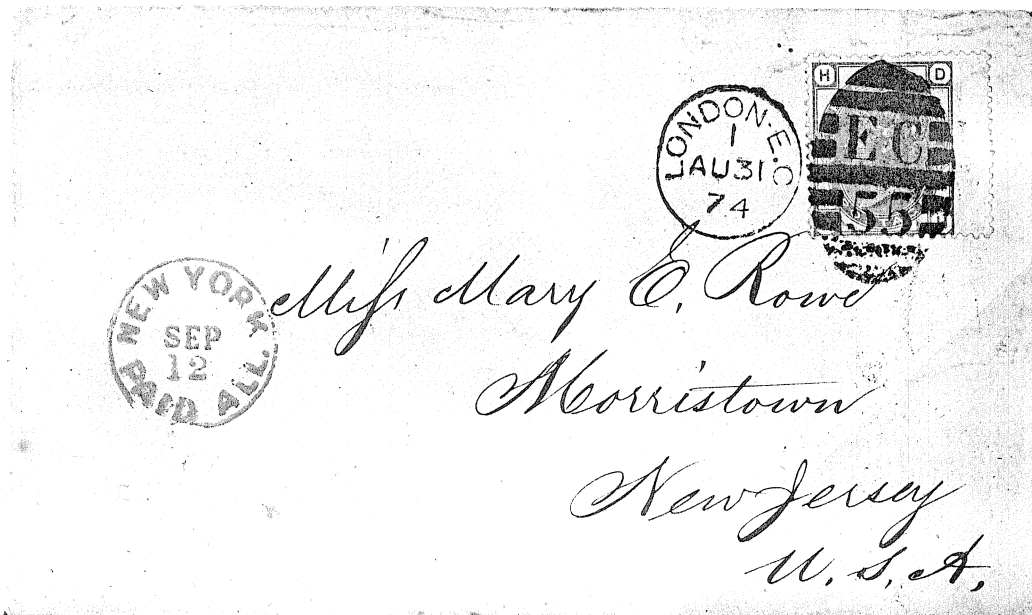 H D
LONDON·E.C
1
AU31
74
EC
55
NEW YORK
SEP
12
PAID ALL.
Miſs Mary E. Rowe
Morristown
New Jersey
U. S. A.